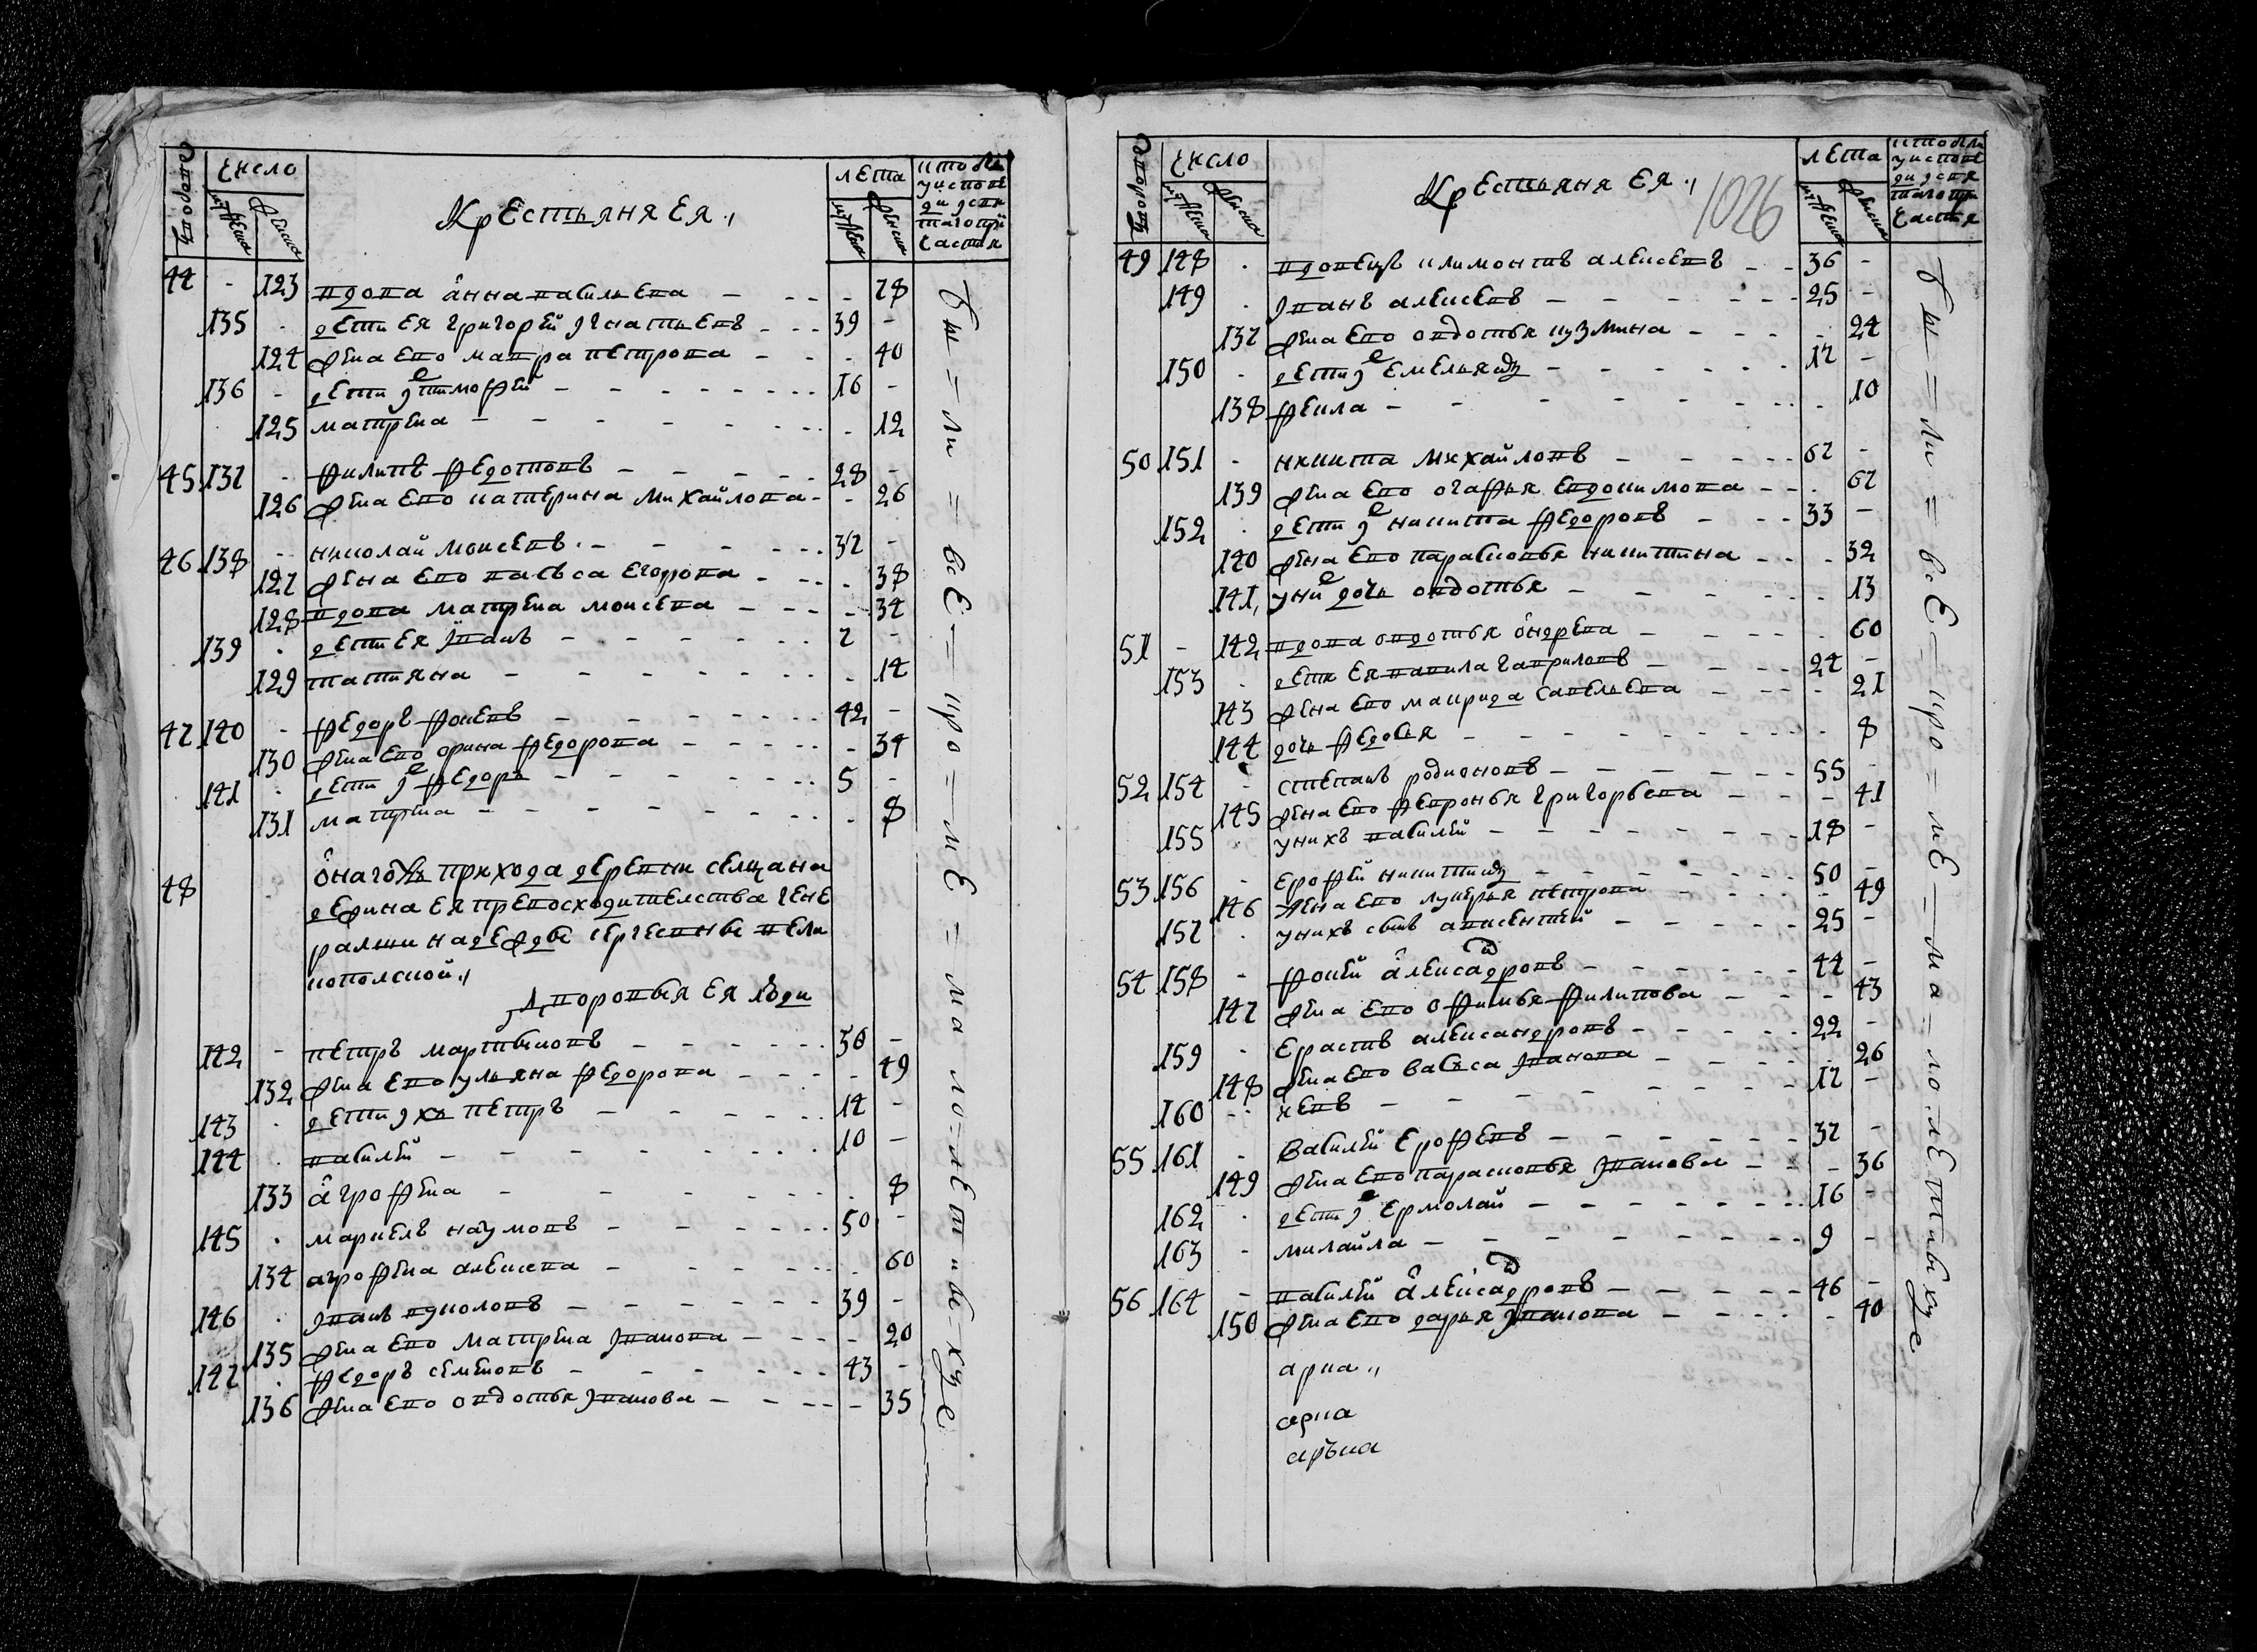 число
лета
Крестьяня ея
44 - 123 вдова анна василева - 78
135 - дети ея григорей игнатьевъ - 39 -
124 жена ево мавра петрова - 40
136 - дети ие тимофей - 16 -
125 матрена - 12
45 137 - филипъ федотовъ - 28 -
126 жена ево катерина михайлова - 26
46 138 - николай моисевъ - 37 -
127 жена ево васиса егорова - 38
128 вдова матрена моисева - 34
139 - дети ея иванъ - 7 -
129 татияна - 14
47 140 - федоръ фокевъ - 42 -
130 жена ево орина федорова - 34
141 - дети ие федоръ - 5 -
131 матрена - 8
48 онагожъ прихода деревни селцана
дежина ея превосходителства гене
ралши надежде сергеевне
дворовыя ея люди
142 - петръ мартыновъ - 50 -
132 жена ево ульяна федорова - 49
143 - дети ихъ петръ - 14 -
144 - василей - 10 -
133 агрофена - 8
145 - маркелъ наумовъ - 50 -
134 агрофена алексева - 60
146 - иванъ вуколовъ - 39 -
135 жена ево матрена иванова - 20
147 - федоръ семеновъ - 43 -
136 жена ево овдотья иванова - 35
бы=ли=все=кро=ме=ма=ло=летныхъ
число
Крестьяня ея
1026
лета
49 148 - вдовецъ климонтъ алексевъ - 36 -
149 - иванъ алексевъ - 25 -
137 жена ево овдотья кузмина - 24
150 - дети ие емельянъ - 17 -
138 фекла - 10
50 151 - никита михайловъ - 67 -
139 жена ево огафья евдокимова - 67
152 - дети ие никита федоровъ - 33 -
140 жена ево парасковья никитина - 32
141 у ние дочь овдотья - 13
51 - 142 вдова овдотья ондрева - 60
153 - дети ея вавила гавриловъ - 24 -
143 жена ево маврида савельева - 21
144 дочь федосья - 8
52 154 - степанъ родионовъ - 55 -
145 жена ево февронья григорьева - 41
155 - у нихъ василей - 18 -
53 156 - ерофей никитинъ - 50 -
146 жена ево лукерья петрова - 49
157 - у нихъ сынъ авксентей - 25 -
54 158 - фокей александровъ - 44 -
147 жена ево офимья филипова - 43
159 - ерастъ александровъ - 22 -
148 жена ево васиса иванова - 26
160 - 17 -
55 161 - василей ерофевъ - 37 -
149 жена ево парасковья иванова - 36
162 - дети ие ермолай - 16 -
163 - михайла - 9 -
56 164 - василей александровъ - 46 -
150 жена ево дарья иванова - 40
бы=ли=все=кро=ме=ма=ло=летныхъ